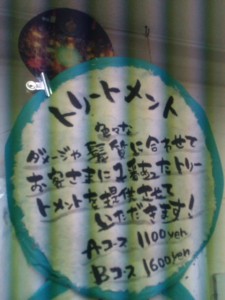 トリートメント
色々な
ダメージや髪質に合わせて
お客さまに1番あったトリー
トメントを提供させて
いただきます!
Aコース 1100yen
Bコース 1600yen